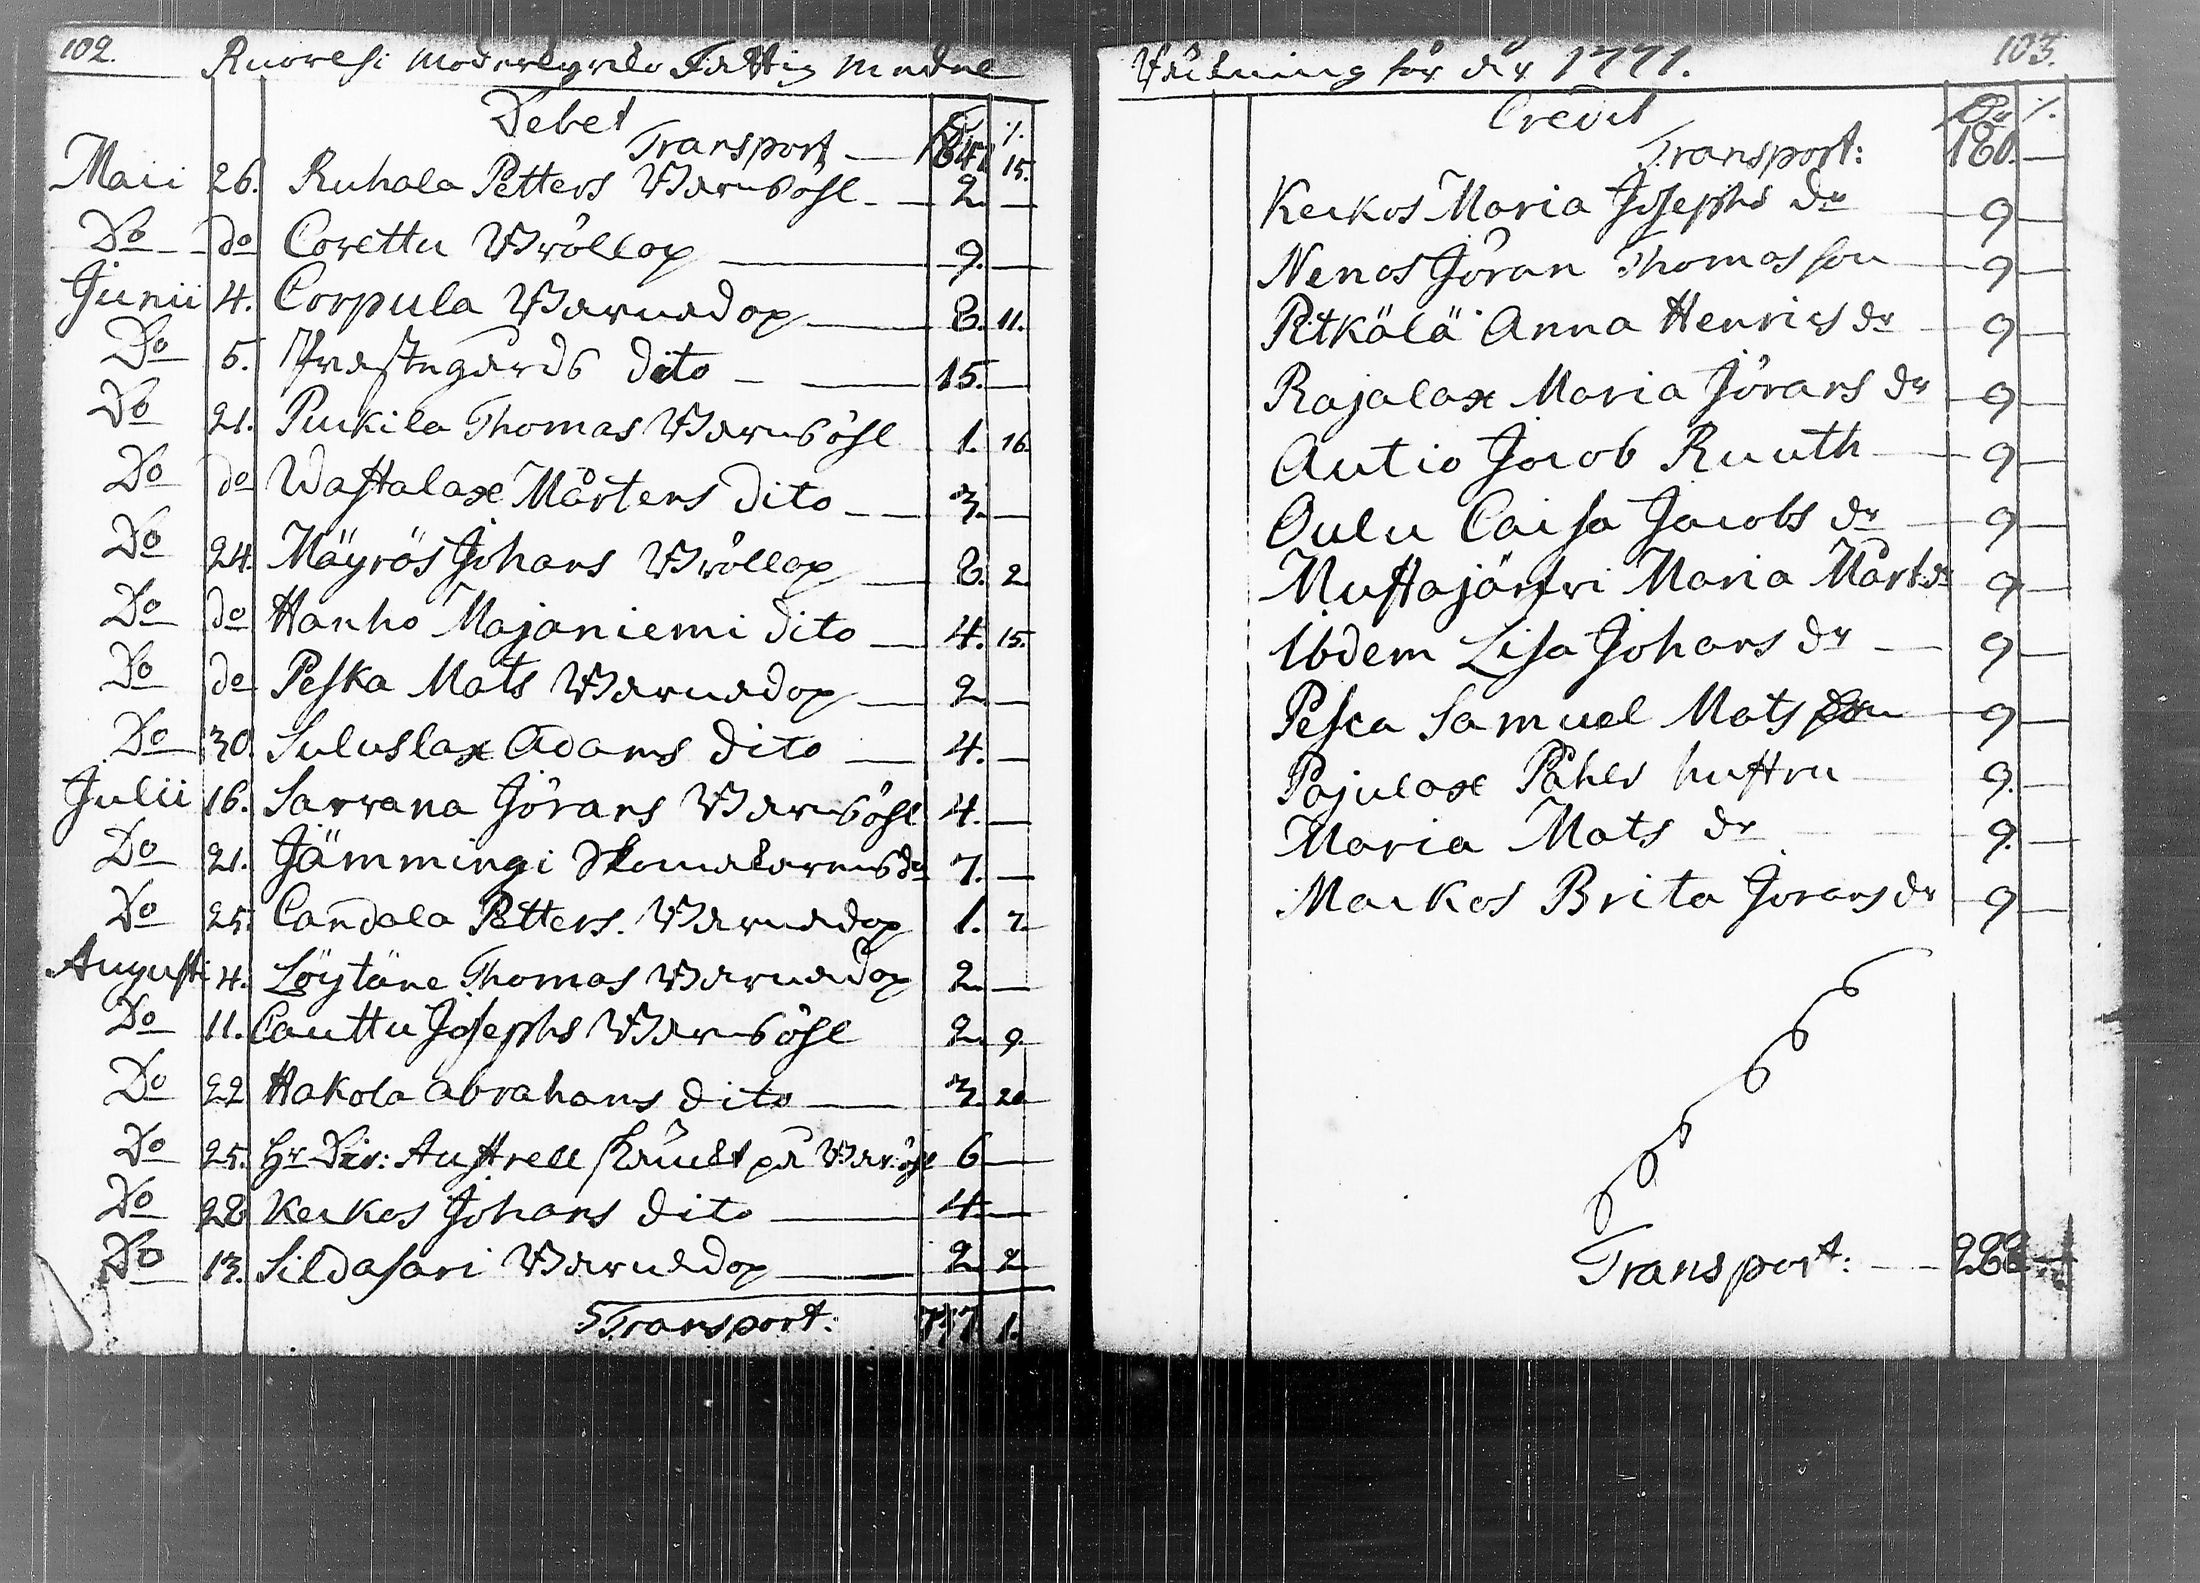 102. Ruovesi Moderkyrko Fattig Medel
Debet
Transport — 15.
Maii 26. Ruhala Petters Barnsöhl — 2. —
Do do Corettu Bröllop — 9. —
Junii 4. Corpula Barnedop — 8. 11.
Do 5. Prestegårds dito — 15. —
Do 21. Puukila Thomas Barnsöhl 1. 16.
Do do Wastalax Mårtens dito — 3. —
Do 24. Mäyrös Johans Bröllop — 8. 2.
Do do Hanho Majaniemi dito — 4. 15.
Do do Peska Mats Barnedop — 2. —
Do 30. Suluslax Adams dito — 4. —
Julii 16. Sarvana Jörans Barnsöhl 4. —
Do 21. Jämmingi 7. —
Do 25. Candala Petters Barnedop 1. 7.
Augusti 4. Löytäne Thomas Barnedop 2. —
Do 11. Cauttu Josephs Barnsöhl 2. 9.
Do 22 Hakola Abrahams dito — 3. 20
Do 25. Hr Austrell skänckt på Bar:öhl 6 —
Do 28 Keikos Johans dito — 4. —
Do 13. Sildasari Barnedop — 2 2
Transport: 1.
Räkning för år 1771. 103.
Credit Dr ./.
Transport: 180. —
Keikos Maria Josephs dr — 9 —
Nenos Jöran Thomasson — 9 —
Pitkälä Anna Henrics dr — 9 —
Rajalax Maria Jörans dr — 9 —
Autio Jacob Ruuth — 9 —
Oulu Caisa Jacobs dr — 9 —
Mustajärfvi Maria Mårt:dr 9 —
Ibdem Lisa Johans dr — 9 —
Pesca Samuel Mats son — 9 —
Pajulax Påhls hustru — 9. —
Maria Mats dr — 9. —
Maikos Brita Jörans dr — 9 —
Transport: — 288